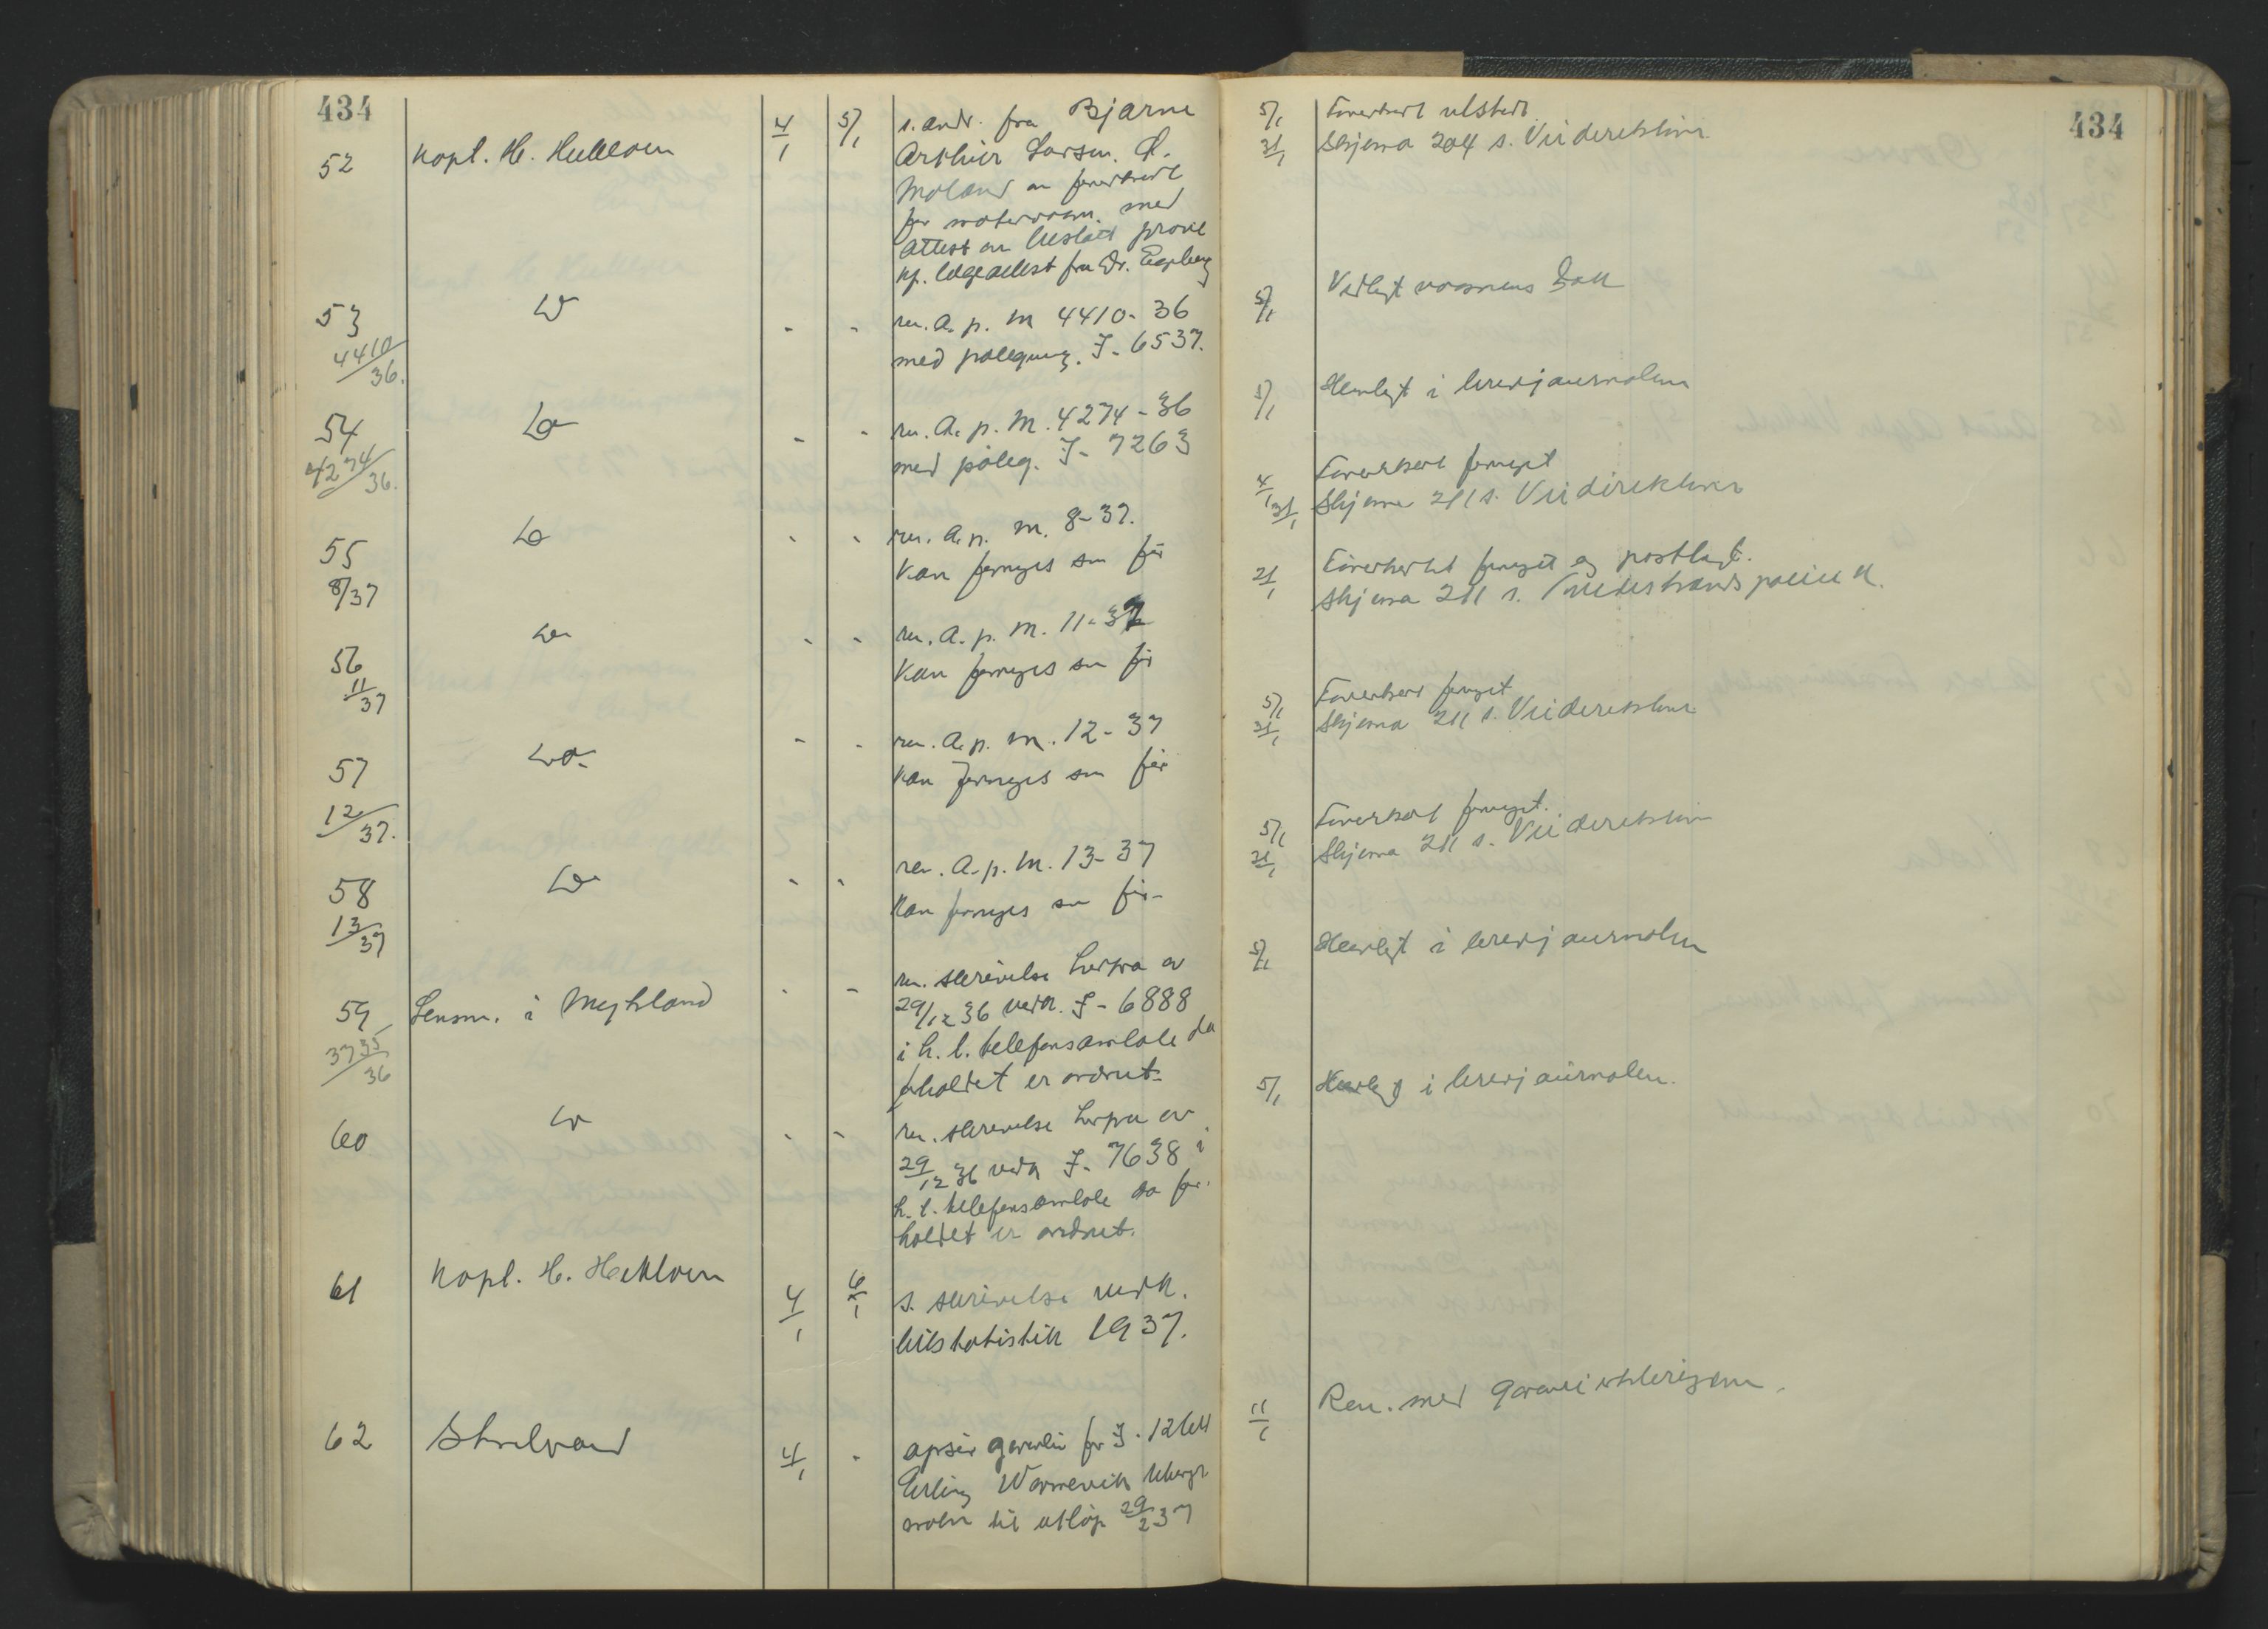 434
52 Kapt. H. Hekloen 4/1 5/1 s. andr. fra Bjarne
Arthur Larsen, 
Moland om førerkort
for motorvogn. med
attest om bestått prøve
og. legeattest fra Dr. 
53 Do - - ren. A. p. m 4410-36
4410/36. med pålegning. I- 6537.
54 Do - - ren. A. p. M. 4274-36
4274/36. med påleg. I- 7263
55 Do - - ren. A. p. m. 8-37.
8/37 Kan fornyes som før
56 Do - - ren. A. p. m. 11-37
11/37 Kan fornyes som før
57 Do - - ren. A. p. m. 12-37
12/37. Kan fornyes som før
58 Do - - ren. A. p. m. 13-37
13/37 Kan fornyes som før-
59 Lensm. i Mykland - - ren. skrivelse herfra av
3735/36 29/12 36 vedk. I- 6888
i h. t. telefonsamtale da
forholdet er ordnet-
60 Do - - ren. skrivelse herfra av
29/12 36 vedk I- 7638 i
h. t. telefonsamtale da for-
holdet er ordnet.
61 Kapt. H. Hekloen 4/1 6/1 s. skrivelse vedk.
bilstatistikk 1937.
62 Storebrand 4/1 - opsier garanti for I-
Erling 
 til utløp 29/2 37
434
5/1 Førerkort utstedt.
31/1 Skjema 204 s. Veidirektøren
5/1 Vedlagt vognens Dok
5/1 Henlagt i brevjournalen
4/1 Førerkort fornyet
31/1 Skjema 211 s. Veidirektøren
21/1 Førerkortet fornyet og postlagt.
Skjema 211 s. Tvedestrands politik.
5/1 Førerkort fornyet
31/1 Skjema 211 s. Veidirektøren
5/1 Førerkort fornyet.
31/1 Skjema 211 s. Veidirektøren
5/1 Henlagt i brevjournalen
5/1 Henlagt i brevjournalen.
11/1 Ren. med garantierklæringen.